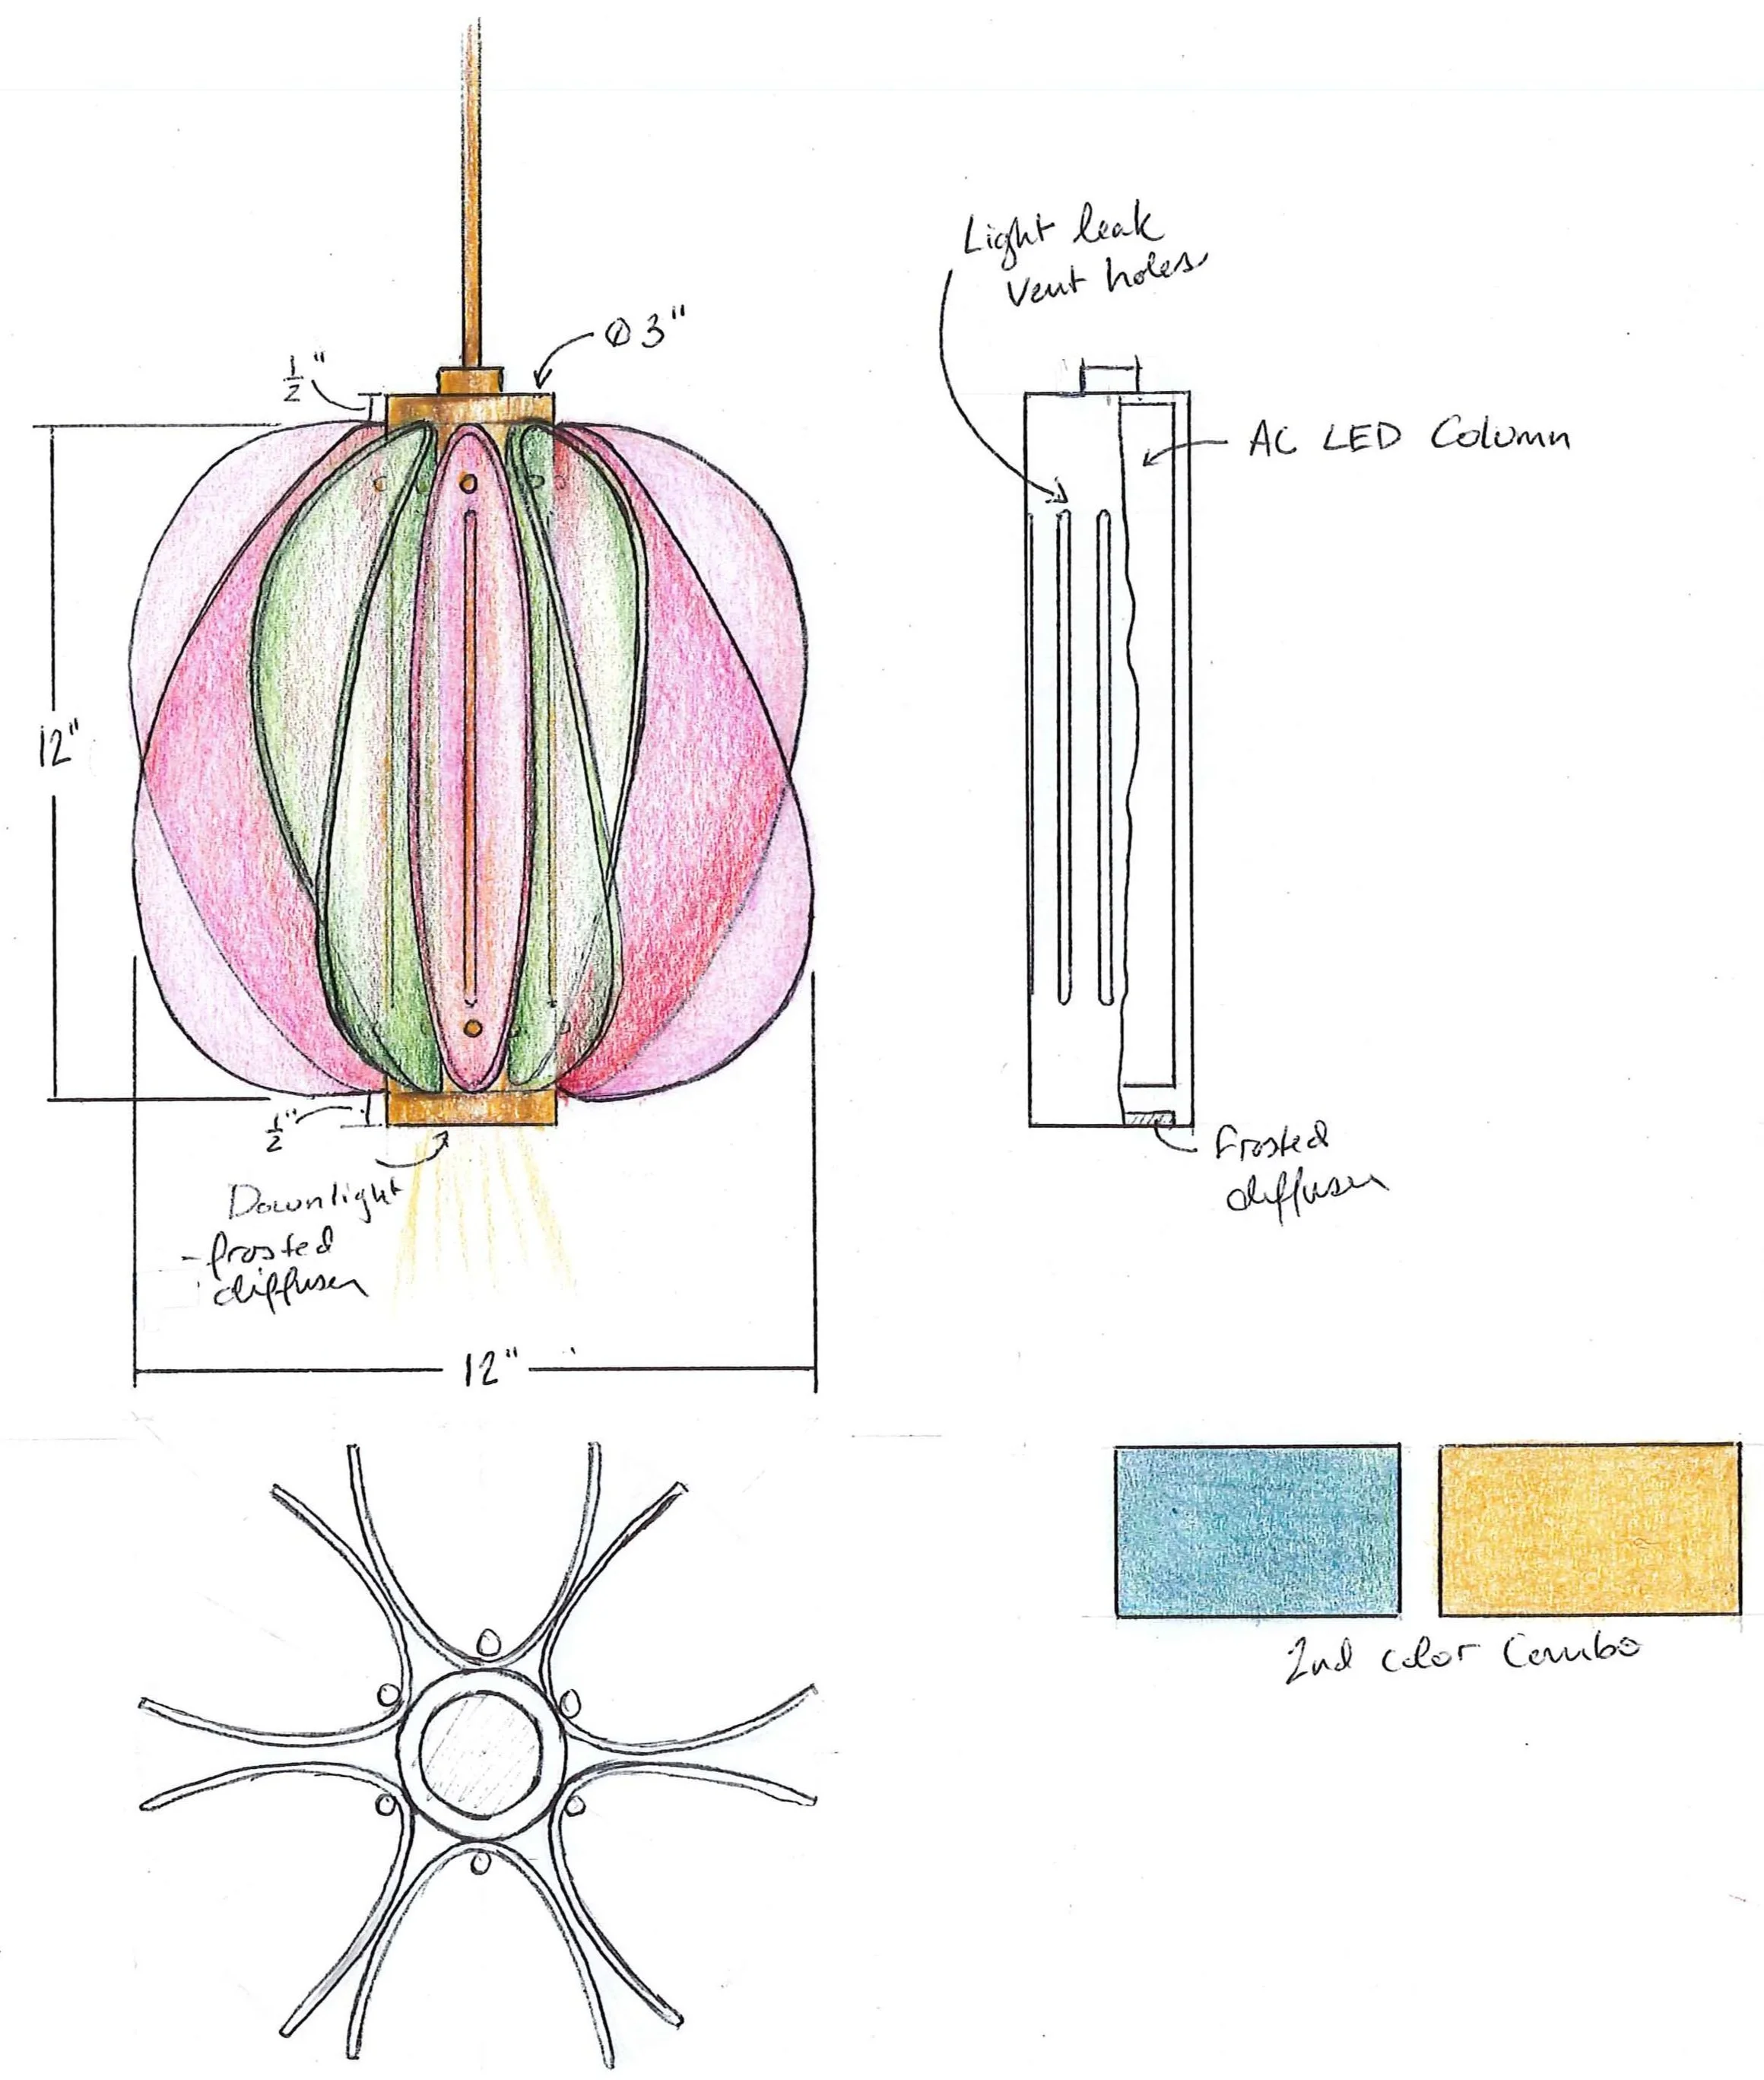 Light leak
Vent holes
Ø 3"
1/2"
AC LED Column
12"
1/2"
Downlight
- frosted
diffuser
Frosted
diffuser
12"
2nd color Combo